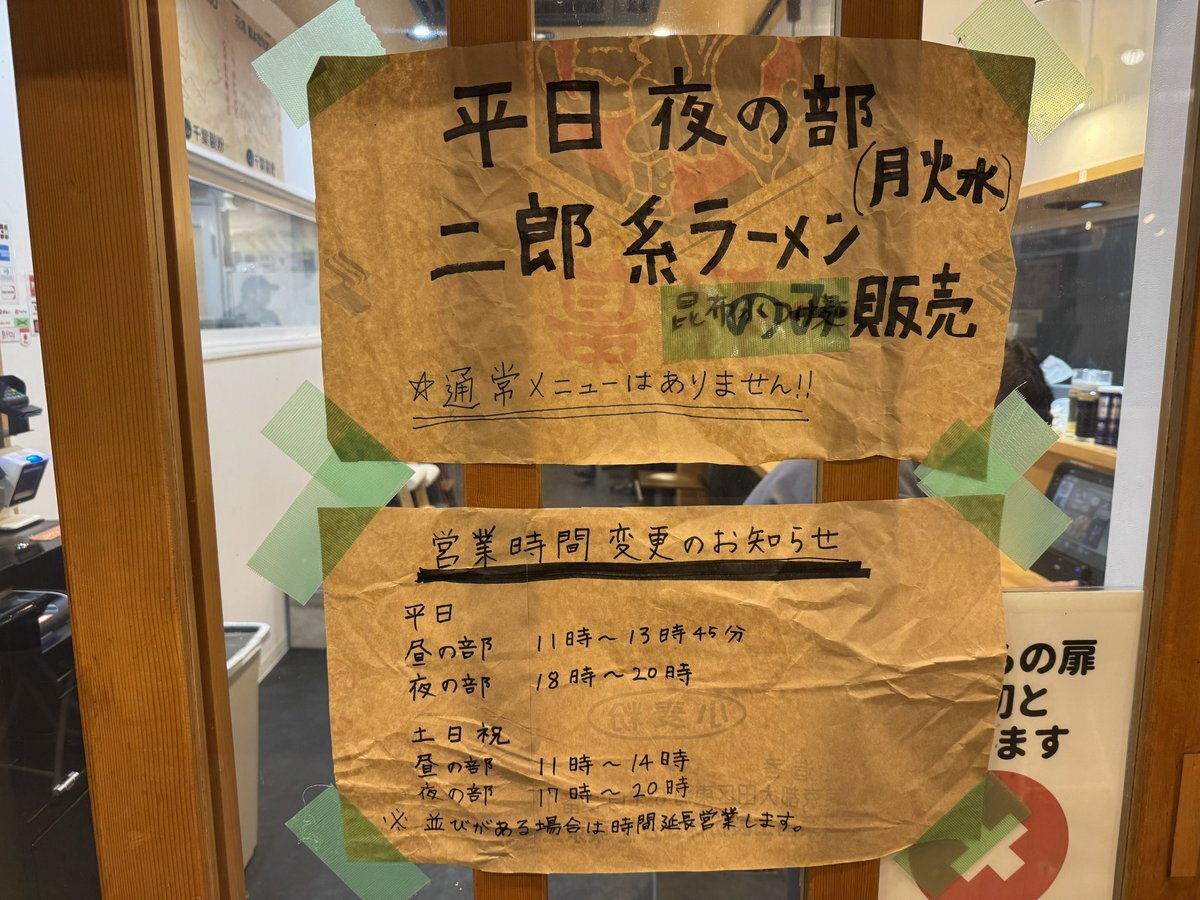 平日 夜の部
(月火水)
二郎系ラーメン
昆布水つけ麺 販売
☆通常メニューはありません!!
営業時間変更のお知らせ
平日
昼の部 11時〜13時45分
夜の部 18時〜20時
土日祝
昼の部 11時〜14時
夜の部 17時〜20時
※ 並びがある場合は時間延長営業します。
小麦粉
千葉製粉
らの扉
切と
ます